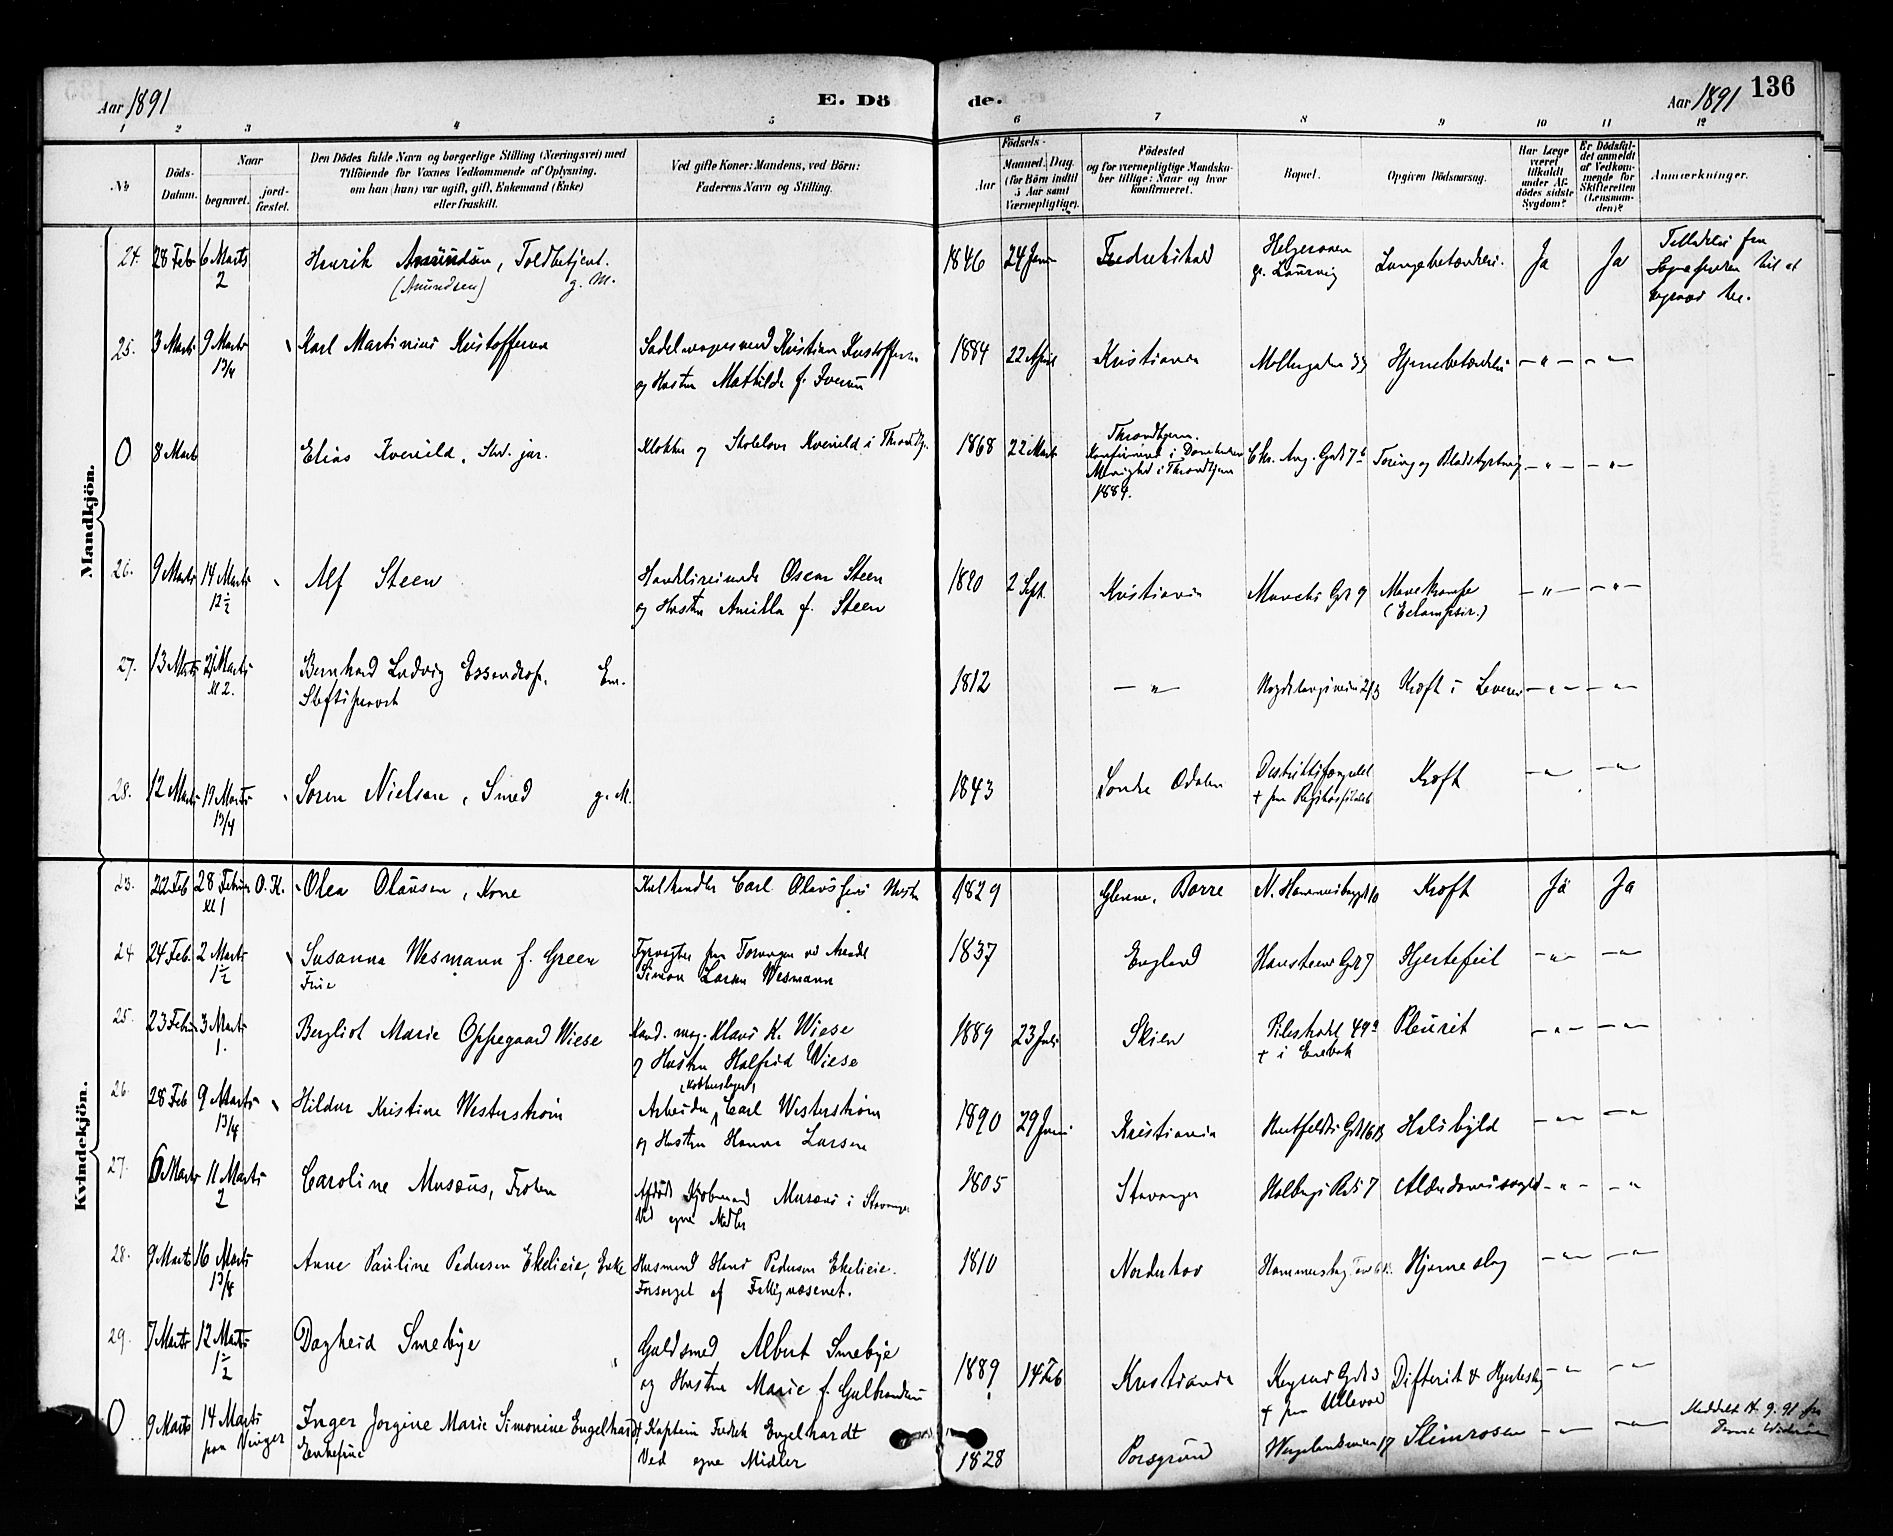 Aar 1891
E. Dö
de.
Aar 1891
136
1 2 3 4 5 6 7 8 9 10 11 12
No
Döds-Datum.
Naar
begravet.
jord-fæstet.
Den Dödes fulde Navn og borgerlige Stilling (Næringsvei) med
Tilföiende for Voxnes Vedkommende af Oplysning,
om han (hun) var ugift, gift, Enkemand (Enke)
eller fraskilt.
Ved gifte Koner: Mandens, ved Börn:
Faderens Navn og Stilling.
Födsels-
Aar
Maaned. Dag.
(for Börn indtil
5 Aar samt
Værnepligtige).
Födested
og for værnepligtige Mandsku-
ber tillige: Naar og hvor
konfirmeret.
Bopæl.
Opgiven Dödsaarsag.
Har Læge
været
tilkaldt
under Af-
dödes sidste
Sygdom?
Er Dödsfal-
det anmeldt
af Vedkom-
mende for
Skifteretten
(Lensman-
den)?
Anmærkninger.
Mandkjön.
24. 28 Feb 6 Marts Henrik Amundsen, Toldbetjent. 1846 24 Juni Fredrikshald Helgeroaen Lungebetændelse. Ja Ja
2 (Amundsen) g. M. Laurvig
25. 3 Marts 9 Marts Karl Martinius Kristoffersen Sadelmagersvend Kristian Kristoffersen 1884 22 April Kristiania Møllergaden 33 Hjernebetændelse — " — — " —
13/4 og Hustru Mathilde f. Iversen
0 8 Marts Elias Kverild, Stud. jur. Klokker og Skolelærer Kverild i Throndhj. 1868 22 Marts Throndhjem. Chr. Aug. Gade 7 b Tæring og Blodstyrtning — " — — " —
Konfirmeret i Domkirkens
Menighed i Throndhjem
1884.
26. 9 Marts 14 Marts Alf Steen Handelsreisende Oscar Steen 1890 2 Sept. Kristiania Munchs Gd 9 Mavekrampe — " — — " —
12 1/2 og Hustru Amilla f. Steen (Eclampsie.)
27. 13 Marts 21 Marts Bernhard Ludvig Essendrop, Em. 1812 — " — 23 Kræft i Leveren — " — — " —
kl 2. Stiftsprovst
28. 12 Marts 19 Marts Søren Nielsen, Smed g. M. 1843 Søndre Odalen Distriktsfængslet Kræft — " — — " —
13/4 † paa Rigshospitalet
Kvindekjön.
23. 22 Feb 28 Februar O.K. Olea Olausen, Kone Kulhandler Carl Olausens Hustru 1829 Glenne, Borre N. Hammersborggd 10 Kræft Ja Ja
kl 1
24 24 Feb. 2 Marts Susanna Wesmann f. Green Fyrvogter paa Torungen ved Arendal 1837 England Hansteens Gd 7 Hjertefeil — " — — " —
1 1/2 Frue Simon Larsen Wesmann
25. 23 Februar 3 Marts Bergliot Marie Oppegaard Wiese Kand. mag. Klaus K. Wiese 1889 23 Juli Skien Pilestrædet 49 a Pleurit — " — — " —
1. og Hustru Halfrid Wiese † i Enebak
26. 28 Feb 9 Marts Hildur Kristine Westerstrøm Arbeider Carl Westerstrøm 1890 29 Juni Kristiania Huitfeldts Gd 16 B Halsbyld — " — — " —
13/4 og Hustru Hanna Larsen
27. 6 Marts 11 Marts Caroline Musæus, Frøken Afdøde Kjøbmand Musæus i Stavanger 1805 Stavanger Holbergs Pl. 7 Alderdomssvaghed — " — — " —
2 Ved egne Midler
28. 9 Marts 16 Marts Anne Pauline Pedersen Ekelieie, Enke Husmand Hans Pedersen Ekelieie. 1810 Norderhov Hjerneslag — " — — " —
13/4 Forsørget af Fattigvæsenet.
29. 7 Marts 12 Marts Dagheid Smebye Guldsmed Albert Smebye 1889 14 Feb Kristiania Keysers Gd 3 Difterit & Hjerteslag — " — — " —
1 1/2 og Hustru Marie f. Gulbrandsen † paa Ullevaal
0 9 Marts 14 Marts Inger Jorgine Marie Simonine Engelhardt, Kaptein Fredrik Engelhardt 1828 Porsgrund Wergelandsveien 17 Slimrosen — " — — " —
paa Vinger Enkefrue Ved egne Midler